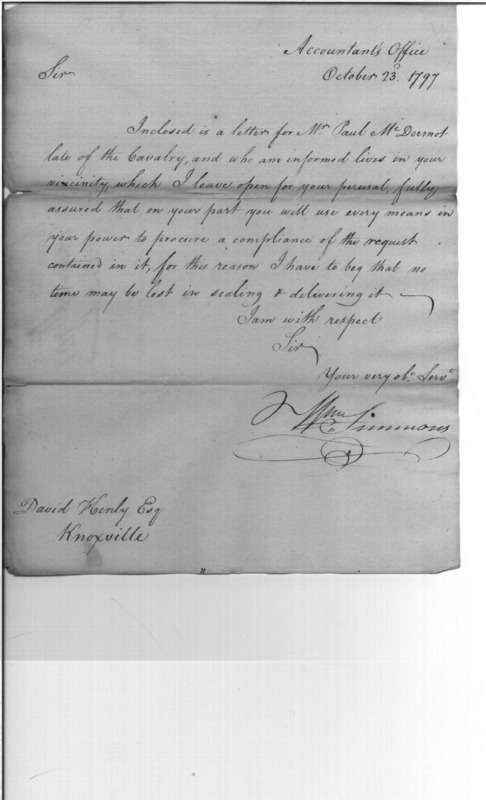 Accountant's Office
Sir
October 23. 1797
Inclosed is a letter for Mr. Paul McDermot
late of the Cavalry, and who am informed lives in your
vincinity, which I leave open for your perusal, fully
assured that on your part you will use every means in
your power to procure a compliance of the request
contained in it, for this reason I have to beg that no
time may be lost in sealing & delivering it
I am with respect
Sir
Your very obt. Servt.
Wm Simmons
David Henly Esq
Knoxville